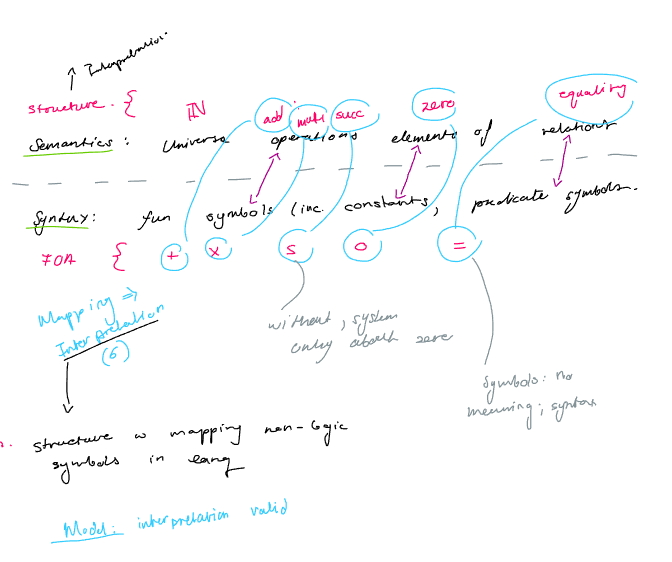 Interpretation.
Structure. { IN add multi succ zero equality
Semantics: Universe operations elements of relations
Syntax: fun symbols (inc. constants, predicate symbols.
FOA { + x S 0 =
Mapping ⇒
Interpretation
(6)
without, system
only about zero
symbols: no
meaning; syntax
structure w mapping non-logic
symbols in lang
Model: interpretation valid